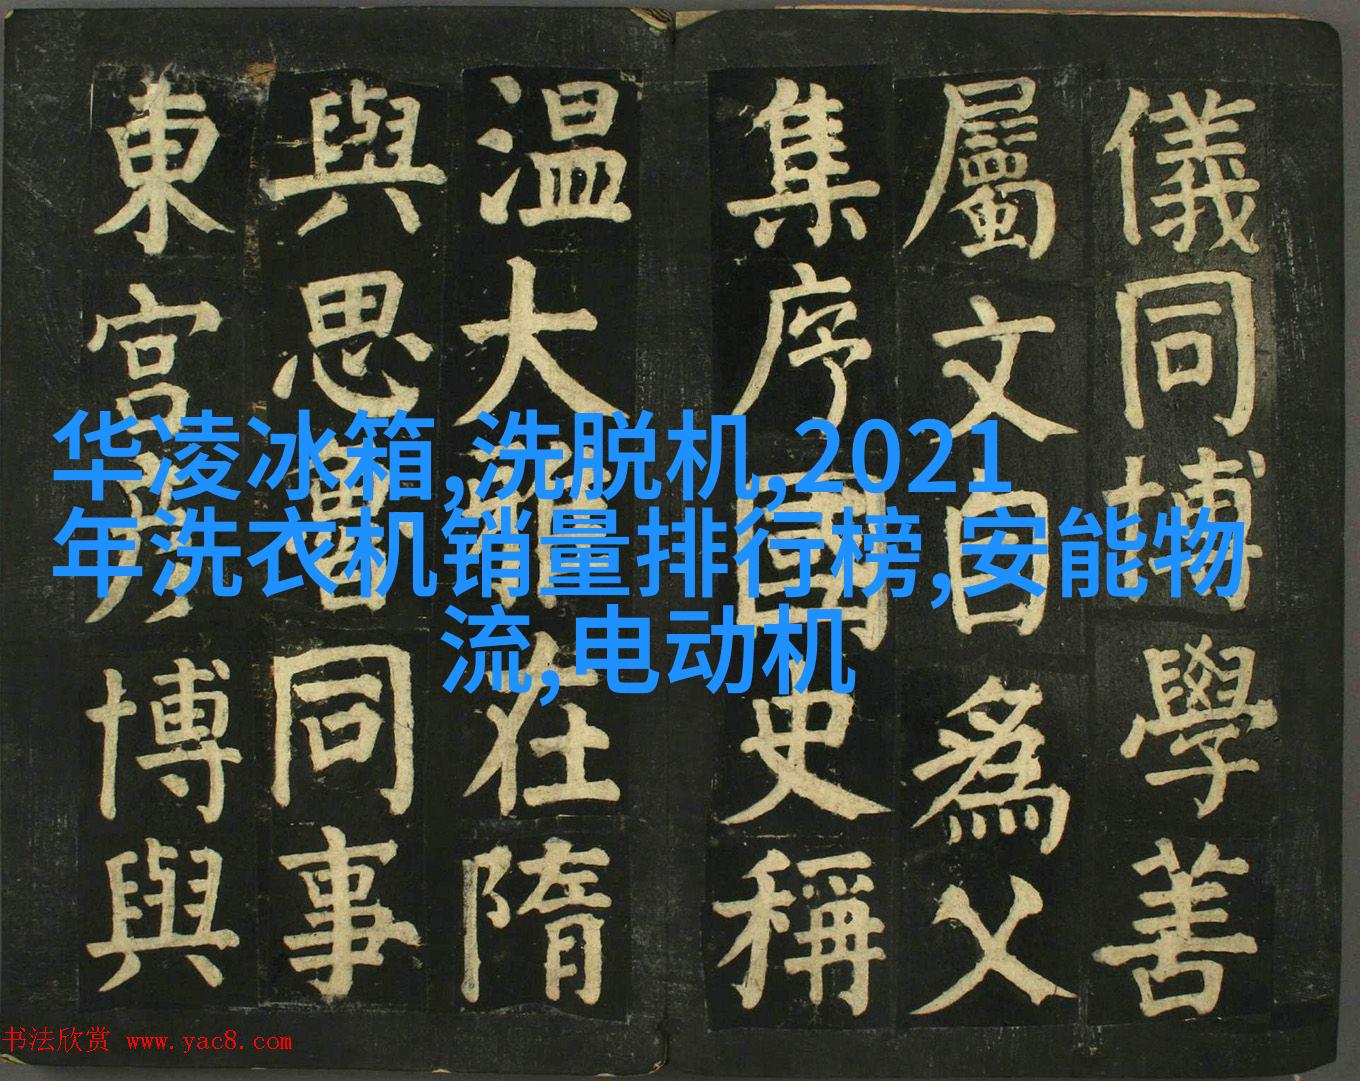 儀同博學善
屬文自為父
集序國史稱
温大雅在隋
與思魯同事
東宫彦博與
华凌冰箱,洗脱机,2021
年洗衣机销量排行榜,安能物
流,电动机
书法欣赏 www.yac8.com